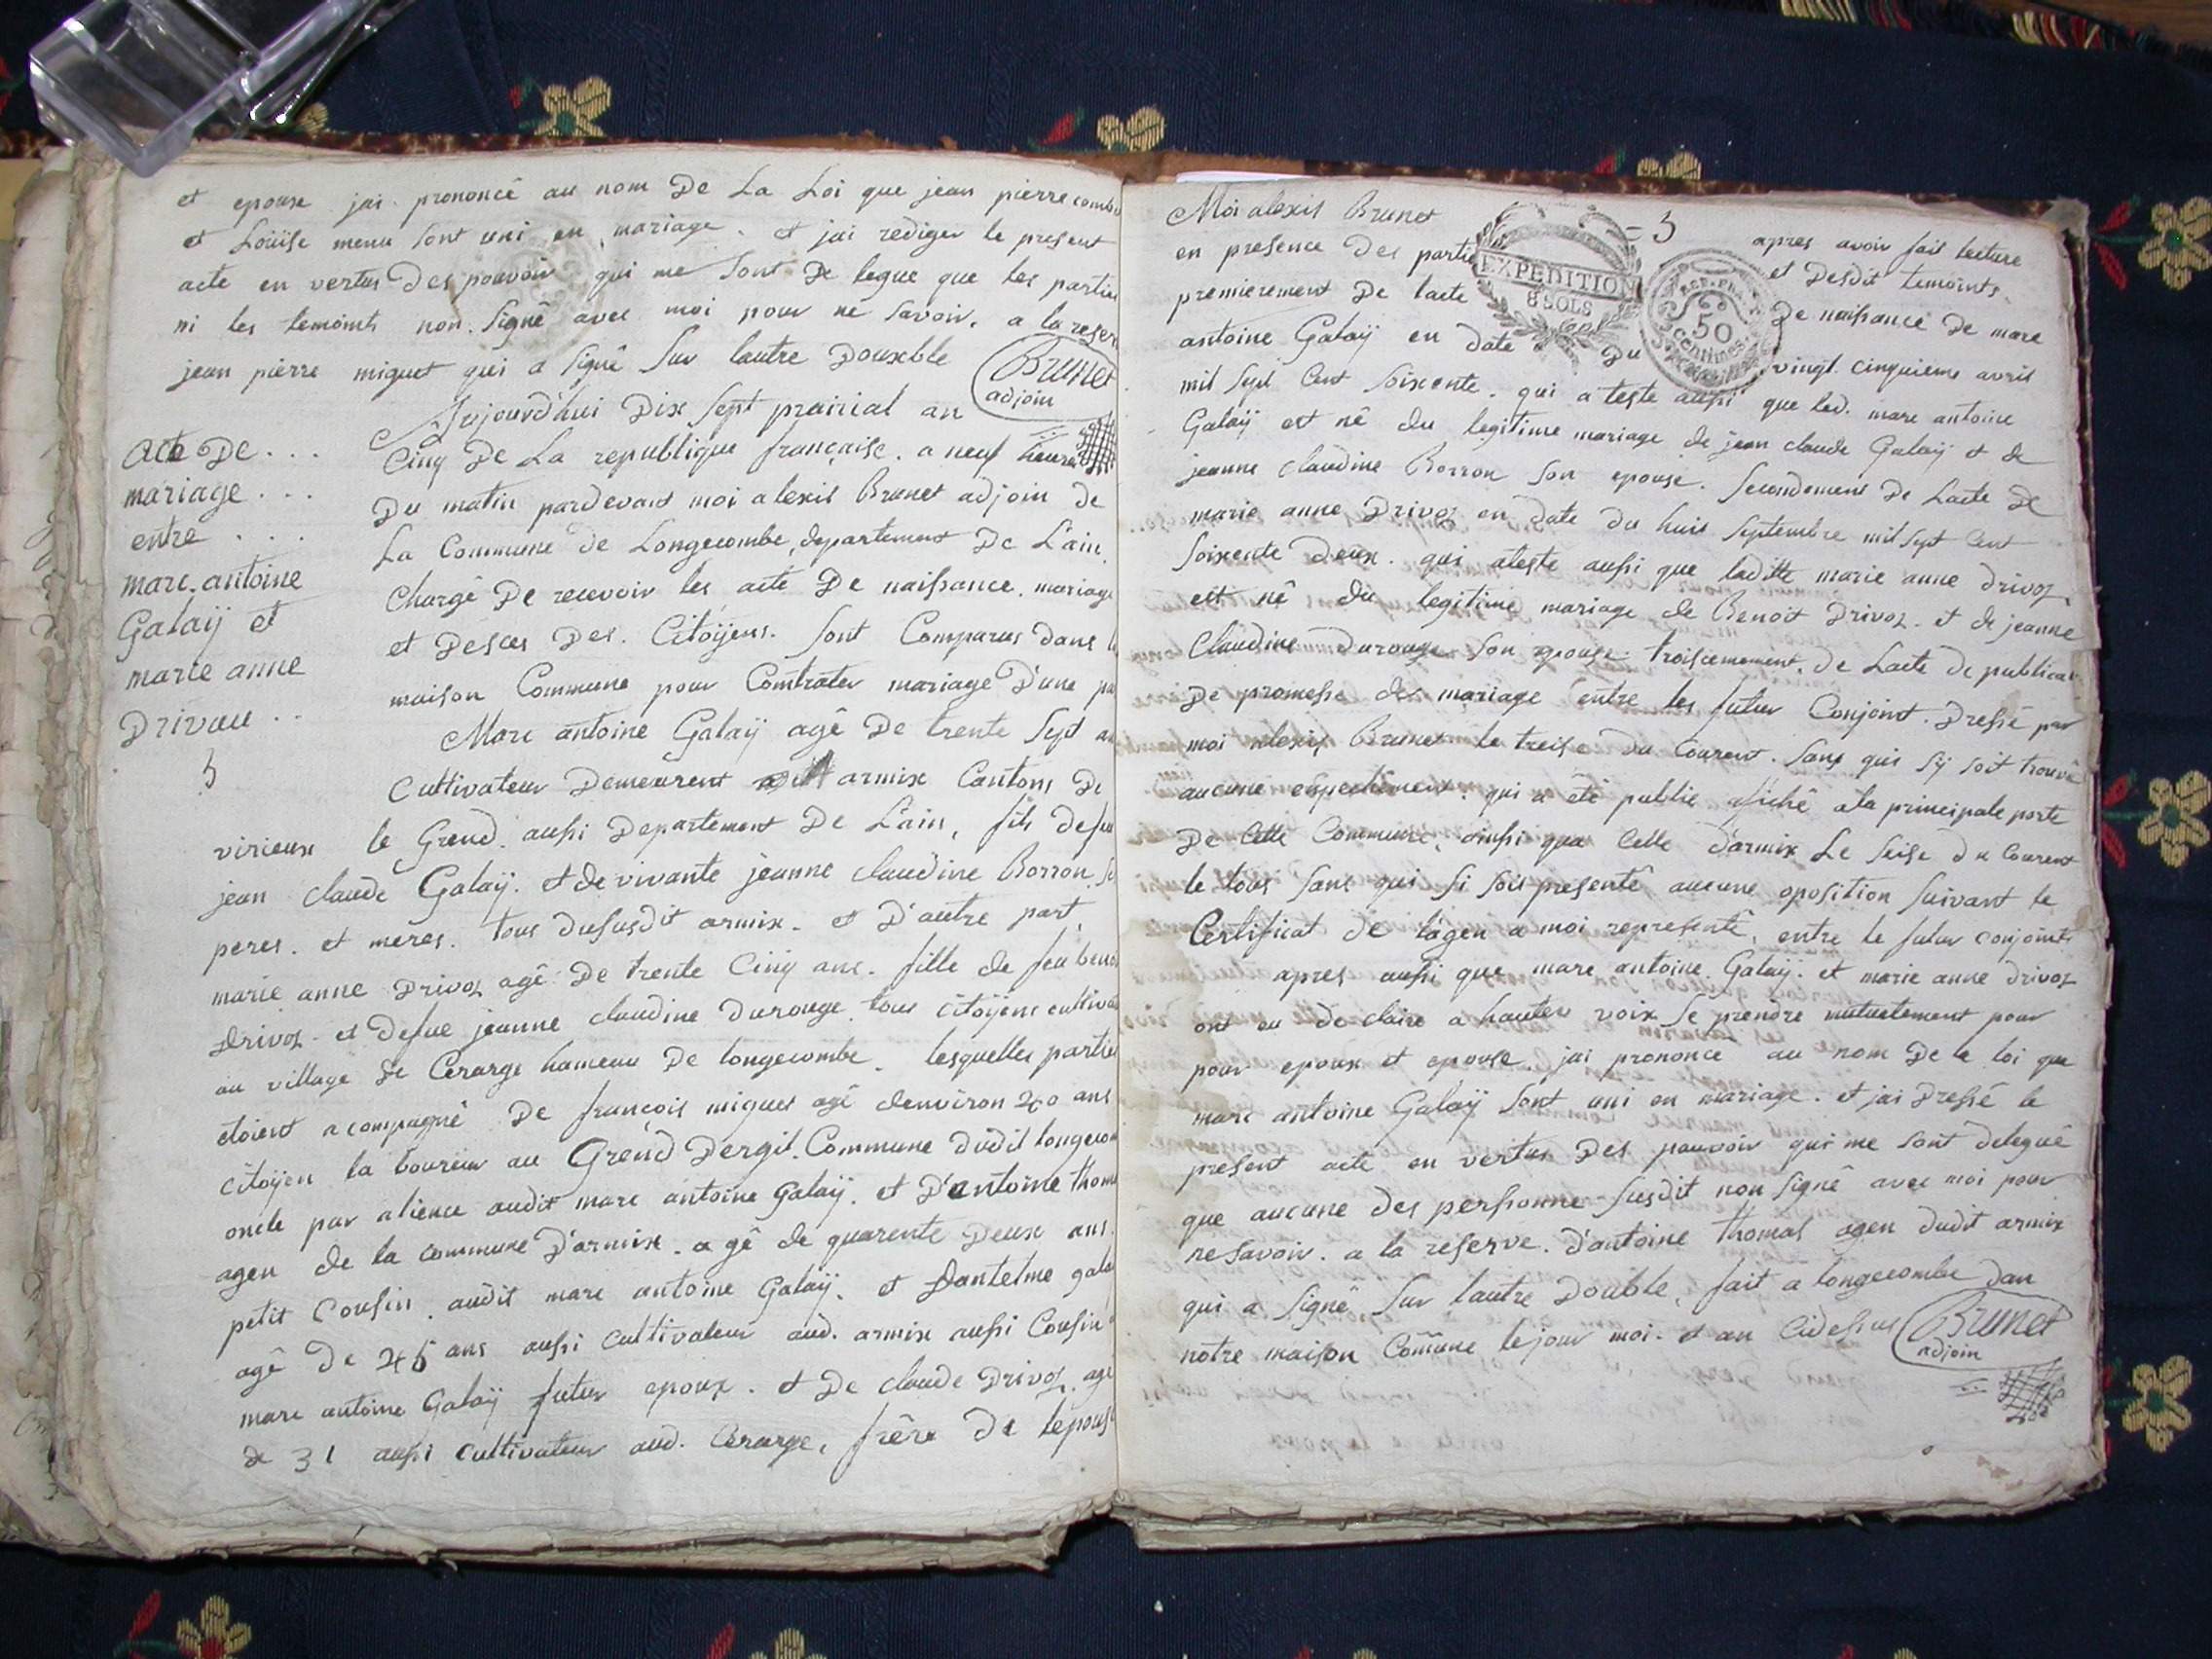 et epouse jai prononcé au nom De La Loi que jean pierre combe
et Loüise menu sont uni en mariage. et jai rediger le present
acte en vertus Des pouvoir qui me sont De legue que les partie
ni les temoints non signé avec moi pour ne savoir. a la reser
jean pierre miguet qui a signé sur lautre Douxble
Brunet
adjoin
Aujourd'hui Dix sept prairial an
Cinq De La republique française. a neuf heures
Du matin pardevant moi alexis Brunet adjoin de
La Commune de Longecombe, departement De L'ain.
Chargé De recevoir les acte De naissance. mariage
et Desces Des. Citoÿens. sont Comparus dans l
maison Commune pour Contrater mariage D'une pa
Acte De . . .
mariage . . .
entre . . .
marc. antoine
Galaÿ et
marie anne
Drivau . .
5
Marc antoine Galaÿ agé De trente sept an
Cultivateur Demeurent armix Cantons De
virieux le Grend. aussi Departement De L'ain, fils defeu
jean claude Galaÿ. et de vivante jeanne claudine Borron. s
peres. et meres. tous dususdit armix. et D'autre part.
marie anne Drivoz agé De trente Cinq ans. fille de feu benoi
Drivoz. et defue jeanne claudine Durouge. tous citoÿens cultiva
au village De Cerarge hameau De longecombe. lesquelles partie
etoient acompagné De françois miguet agé denviron 40 ans
citoÿen laboureur au Grend Dergit. Commune dudit longecom
oncle par alience audit marc antoine Galaÿ. et D'antoine thoma
agen de la commune D'armix. agé de quarente Deux ans.
petit Cousin. audit marc antoine Galaÿ. et Dantelme gala
agé De 46 ans aussi cultivateur aud. armix aussi Cousin
marc antoine Galaÿ futur epoux. et De claude Drivoz. age
de 31 aussi cultivateur aud. Cerarge. frêre De lepouse
Moi alexis Brunet
= 3
apres avoir fait lecture
en presence Des partie
et Desdit temoints.
EXPEDITION
8 SOLS
REP. FRA.
50
centimes
premierement De lacte
De naissance De marc
antoine Galaÿ en date Du
vingt. cinquieme avril
mil sept Cent soixente. qui a teste aussi que led. marc antoine
Galaÿ est né du legitime mariage de jean claude Galaÿ et de
jeanne claudine Borron son epouse. secondement De Lacte De
marie anne Drivoz en Date du huit septembre mil sept Cent
soixente Deux. qui ateste aussi que laditte marie anne drivoz.
est né du legitime mariage de Benoit Drivoz. et de jeanne
Claudine Durouge son epouse. troisiemement. de Lacte de publicat
De promesse de mariage entre les futur Conjoint. Dressé par
moi alexis Brunet le treise du Courent. sans qui sÿ soit trouvé
aucune enpechement. qui a été publie afiché ala principale porte
De Cette Commune. ainsi que Celle d'armix Le seise du Courent
le tous sans qui si sois presenté aucune oposition suivant le
Certificat de lagen a moi representé. entre le futur conjoint
apres aussi que marc antoine. Galaÿ. et marie anne drivoz
ont eu de claire a hautes voix se prendre mutuetement pour
pour epoux et epouse. jai prononcé au nom De la loi que
marc antoine Galaÿ sont uni en mariage. et jai Dressé le
present acte en vertus Des pouvoir qui me sont delegué
que aucune des perssonne susdit non signé avec moi pour
ne savoir. a la reserve. d'antoine thomas agen dudit armix
qui a signé sur lautre Double. fait a longecombe dan
notre maison Com̃une lejour moi. et an Cidessus
Brunet
adjoin